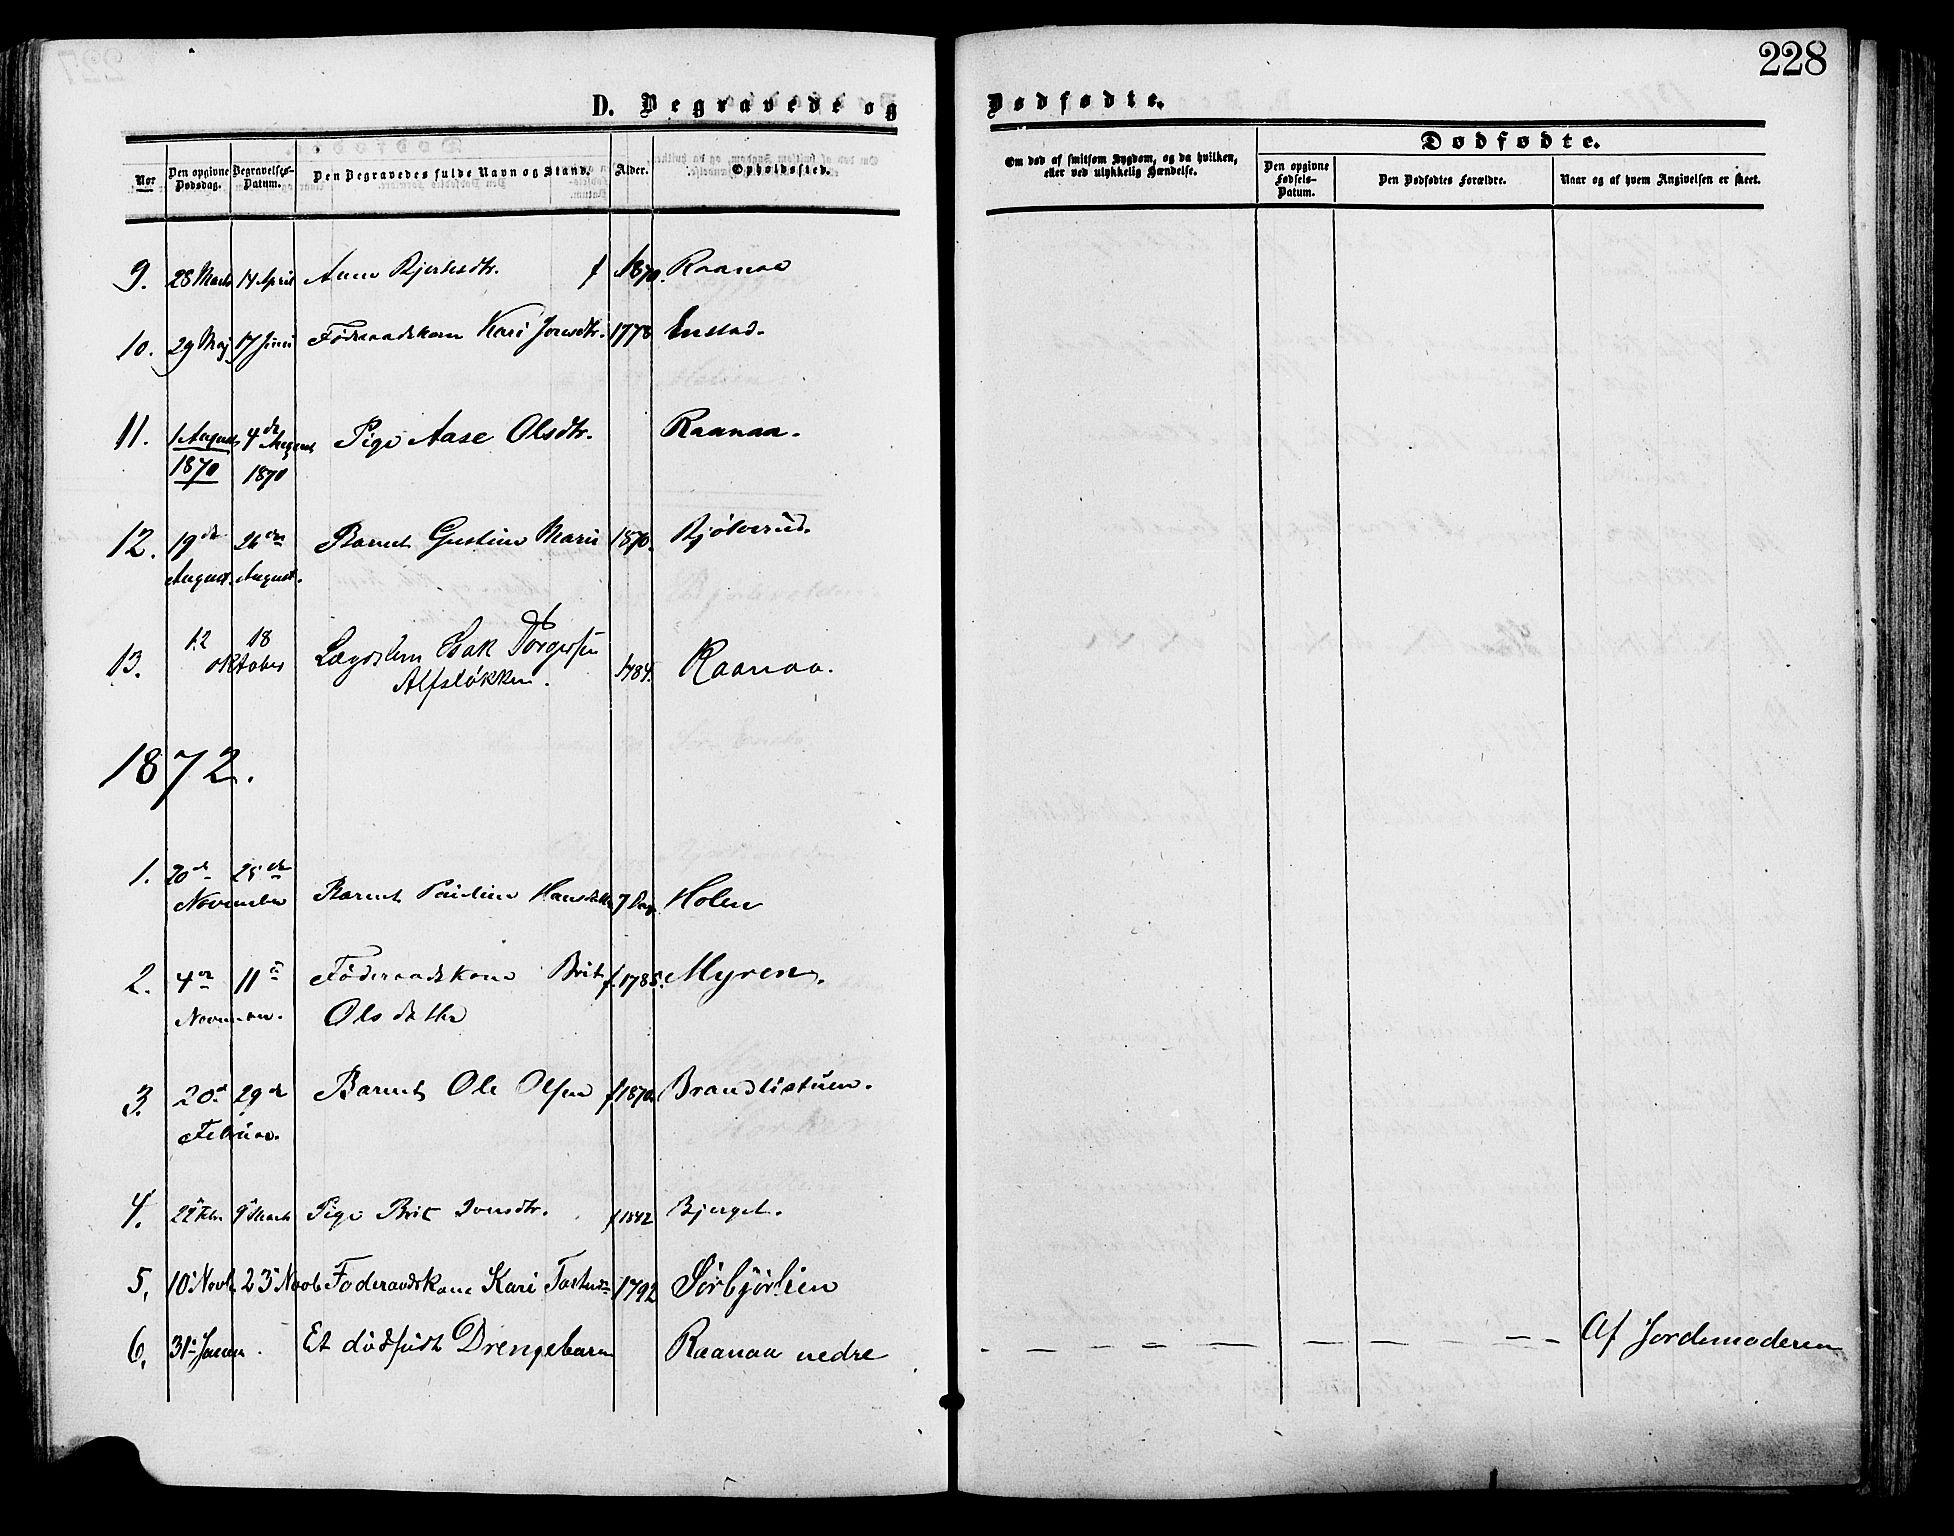 228
D. Begravede og Dødfødte.
Nor
Den opgivne Dødsdag.
Begravelses-Datum.
Den Begravedes fulde Navn og Stand.
Alder.
Opholdssted.
Om død af smitsom Sygdom, og da hvilken, eller ved ulykkelig Hændelse.
Dødfødte.
Den opgivne Fødsels-Datum.
Den Dødfødtes Forældre.
Naar og af hvem Angivelsen er skeet.
9. 28 Marts 14 April Anne f 1870. Raanaa
10. 29 Maj 17 Juni Føderaadskone Kari Jonsdtr. 1778 Enstad.
11. 1 August 1870 4de August 1870 Pige Aase Olsdtr. Raanaa.
12. 19de August. 26de August. Barnet Gustine Marie 1870. Bjølverud.
13. 12 18 oktober Lægdslem Isak Torgersen
Alfsløkken. 1784. Raanaa.
1872.
1. 20de 25de November Barnet Pauline Hansdatter 7 Dag Holen
2. 4de 11te November. Føderaadskone Brit
Olsdatter f. 1785. Myren.
3. 20de 29de Februar. Barnet Ole Olsen f 1870 Brandlistuen.
4. 22 Febr 9 Marts Pige Brit Iversdtr. f 1842 Bjerget.
5. 10 Novb 23 Novb Foderaadskone Kari 1792 Sørbjørlien
6. 31te Januar. Et dødfødt Drengebarn Raanaa nedre Af Jordemoderen